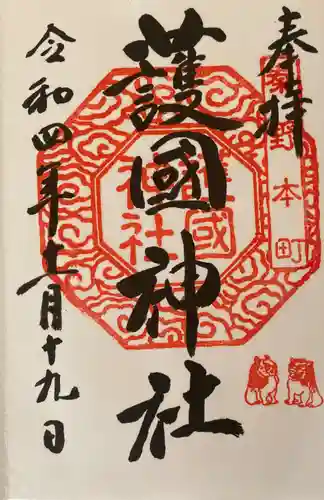 奉拝
野本町
護國神社
護國神社
令和四年十一月十九日